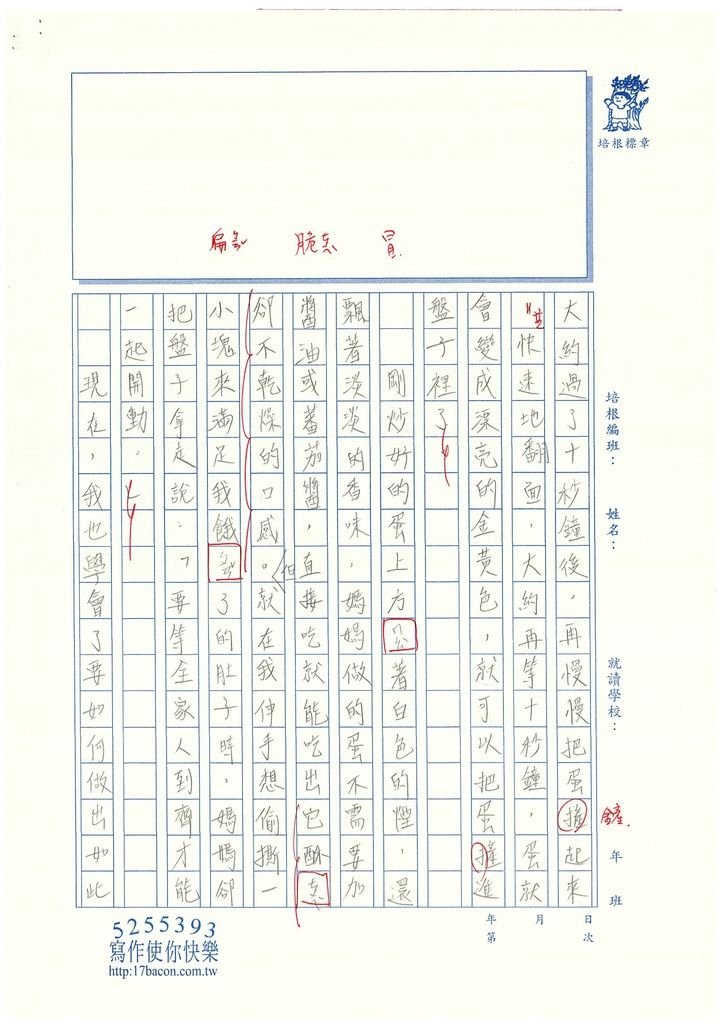 培根標章
冒
脆
扁
培根編班：
姓名：
就讀學校：
年 班
大約過了十秒鐘後，再慢慢把蛋起來
鏟
並快速地翻面，大約再等十秒鐘，蛋就
會變成漂亮的金黃色，就可以把蛋，進
盤子裡了
剛炒好的蛋上方著白色的煙，還
飄著淡淡的香味，媽媽做的蛋不需要加
醬油或蕃茄醬，直接吃就能吃出它酥
卻不乾燥的口感。但就在我伸手想偷撕一
小塊來滿足我餓了的肚子時，媽媽卻
把盤子拿走說：「要等全家人到齊才能
一起開動。
現在，我也學會了要如何做出如此
年 月 日
第 次
5255393
寫作使你快樂
http:17bacon.com.tw